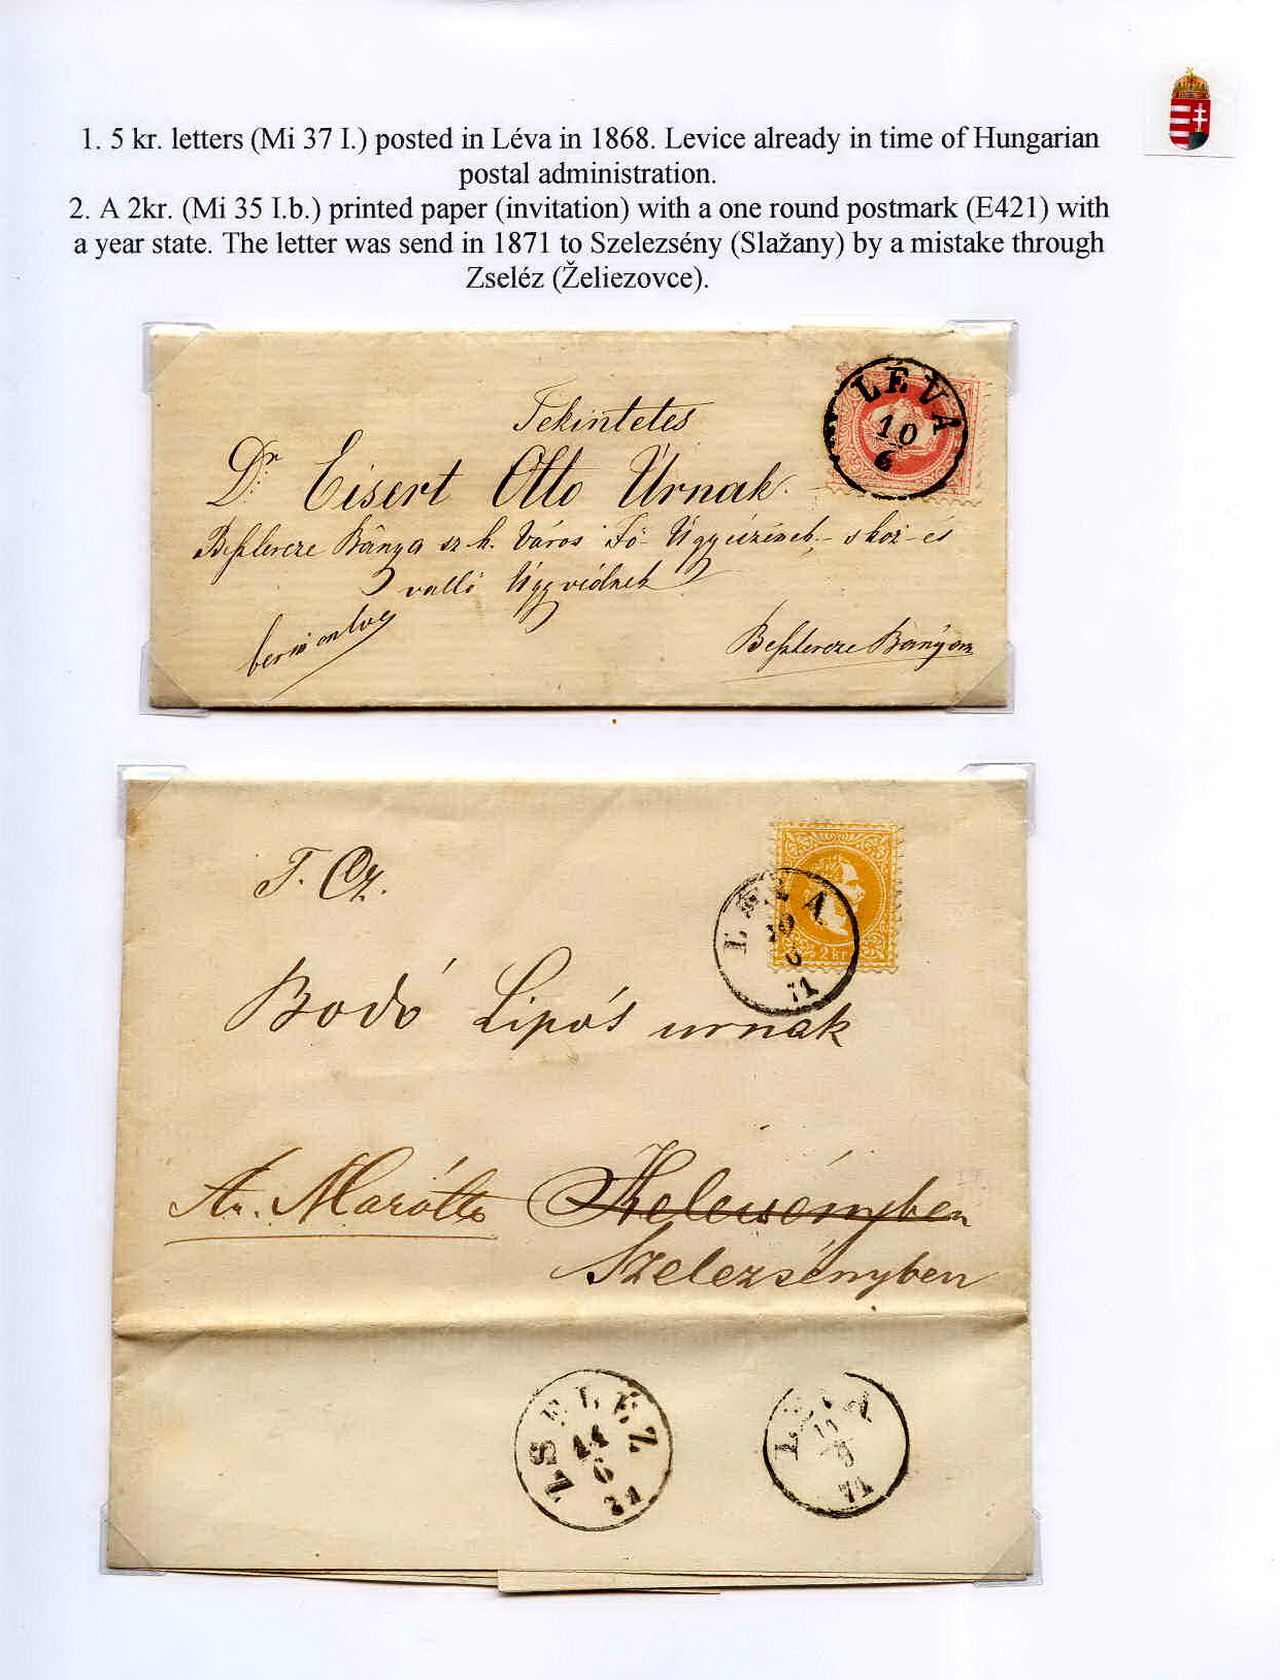 1. 5 kr. letters (Mi 37 I.) posted in Léva in 1868. Levice already in time of Hungarian
postal administration.
2. A 2kr. (Mi 35 I.b.) printed paper (invitation) with a one round postmark (E421) with
a year state. The letter was send in 1871 to Szelezsény (Slažany) by a mistake through
Zseléz (Želiezovce).
LÉVA
10
6
Tekintetes
Dr. Eisert Otto Úrnak.
Besztercze Bánya sz. k. Város Fő Ügyészének
valló Ügyvédnek
bérmentve
Besztercze Bányán
2 kr
LÉVA
10
6
71
T. Cz.
Bodó Lipós urnak
Ar. Maróth
Szelezsényben
ZSELÉZ
11
6
71
11
71